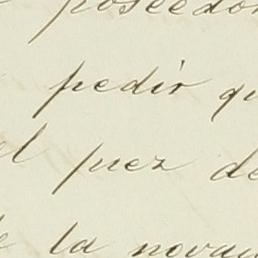 poseedor
pedir qu
el juez de
de la novau